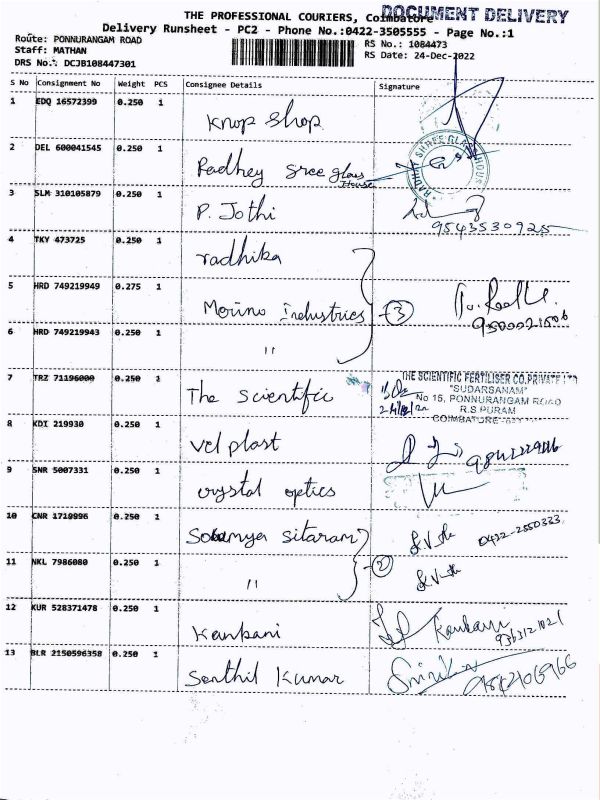 THE PROFESSIONAL COURIERS, Coimbatore
DOCUMENT DELIVERY
Delivery Runsheet - PC2 - Phone No.:0422-3505555 - Page No.:1
Route: PONNURANGAM ROAD
RS No.: 1084473
Staff: MATHAN
RS Date: 24-Dec-2022
DRS No.: DCJB108447301
S No Consignment No Weight PCS Consignee Details Signature
1 EDQ 16572399 0.250 1
Knop Shop
2 DEL 600041545 0.250 1
Radhey Sree glass House
RADHEY SHREE GLASS HOUSE
3 SLM 310105879 0.250 1
P. Jothi
9543530925
4 TKY 473725 0.250 1
radhika
5 HRD 749219949 0.275 1
Morino Industries 3
6 HRD 749219943 0.250 1
"
7 TRZ 71196000 0.250 1
The Scientific
THE SCIENTIFIC FERTILISER CO.PRIVATE LTD
"SUDARSANAM"
No 15, PONNURANGAM ROAD
R.S PURAM
COIMBATORE
8 KDI 219930 0.250 1
Vel plast
9 SNR 5007331 0.250 1
crystal optics
10 CNR 1719996 0.250 1
Sowmya Sitaram
0422-2550333
11 NKL 7986080 0.250 1
" 2
12 KUR 528371478 0.250 1
Kankani
Kankani
9363121021
13 BLR 2150596358 0.250 1
Senthil Kumar